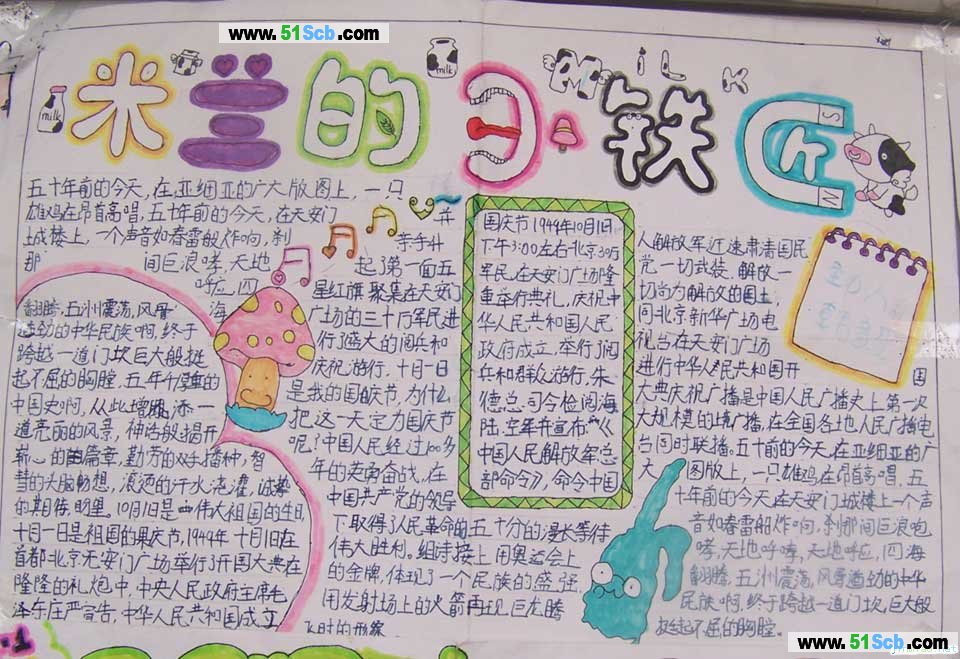 www.51Scb.com
米兰的日铁匠
MiLK
milk
milk
S
N
五十年前的今天,在亚细亚的广大版图上,一只
雄鸡在昂首高唱,五十年前的今天,在天安门
城楼上,一个声音如春雷般炸响,刹
那间巨浪哮,天地
呼应,四海
翻腾,五洲震荡,风骨
遒劲的中华民族啊,终于
跨越一道门坎巨大般挺
起不屈的胸膛,五千年
中国史啊,从此增添一
道亮丽的风景,神话般揭开
崭心的篇章,勤劳的双手播种,智
慧的大脑畅想,滚烫的汗水浇灌,诚挚
的其期待,明里。10月1日是伟大祖国的生日,
十月一日是祖国的果庆节,1949年十月1日在
首都北京天安门广场举行开国大典在
隆隆的礼炮中,中央人民政府主席毛
泽东庄严宣告,中华人民共和国成立
并
等等升
起了第一面五
星红旗聚集在天安门
广场的三十万军民进
行了盛大的阅兵和
庆祝游行,十月一日
是我的国庆节,为什么
把这一天定为国庆节
呢?中国人民经过100多
年的英勇奋战,在
中国共产党的领导
下取得认民革命的
伟大胜利。
五十分的漫长等待
上用奥运会上
的金牌,体现了一个民族的盛强
用发射场上的火箭再现巨龙腾
飞时的形象
国庆节1949年10月1日,
下午3:00左右北京30万
军民在天安门广场隆
重举行典礼,庆祝中
华人民共和国人民
政府成立,举行了阅
兵和群众游行,朱
德总司令检阅海
陆,空军并宣布:“《
中国人民解放军总
部命令》,命令中国
人解放军迅速肃清国民
党一切武装,解放一
切尚力解放的国土,
同北京新华广场电
视台在天安门广场
进行中华人民共和国开国
大典庆祝广播是中国人民广播史上第一次
大规模的广播,在全国各地人民广播电
台同时联播。五十前的今天在亚细亚的广
大图版上,一只雄鸡在昂首高唱,五
十年前的今天在天安门城楼上一个声
音如春雷般炸响,刹那间巨浪咆
哮,天地呼哮,天地呼应,四海
翻腾,五洲震荡,风骨遒劲的中华
民族啊,终于跨越一道门坎,巨大般
挺起不屈的胸膛。
www.51Scb.com